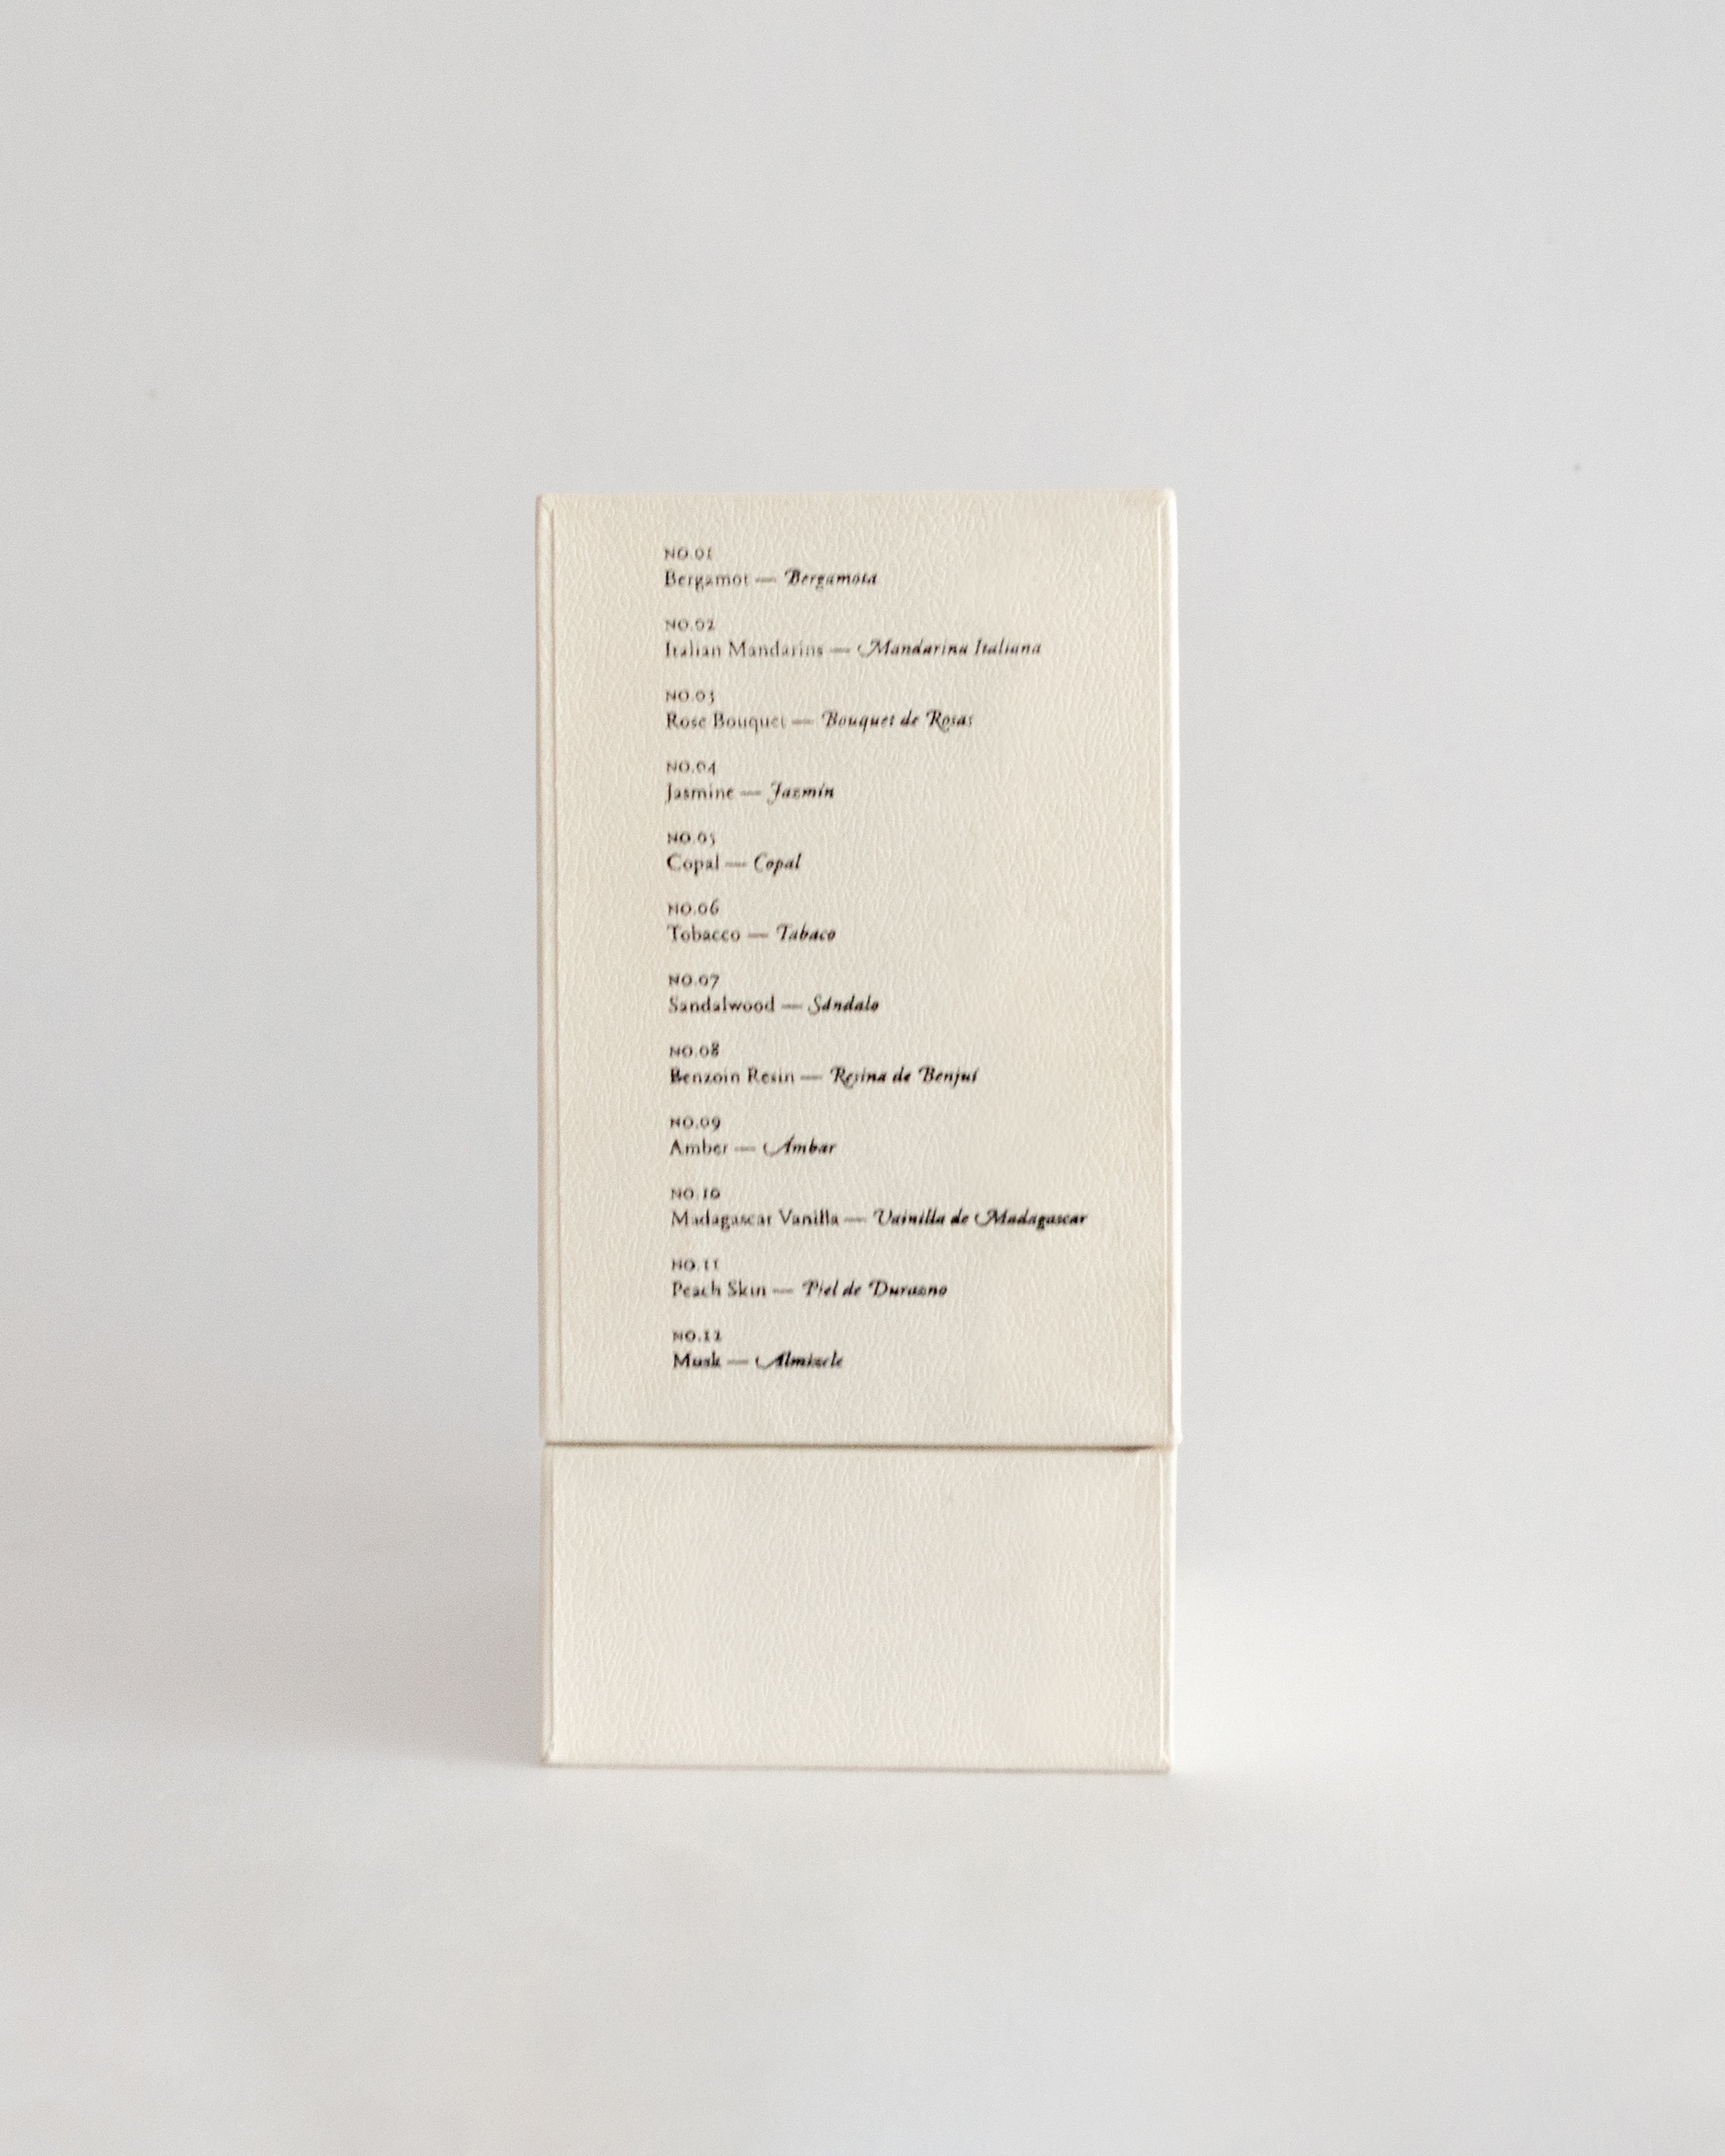 NO.01
Bergamot — Bergamota
NO.02
Italian Mandarins — Mandarina Italiana
NO.03
Rose Bouquet — Bouquet de Rosas
NO.04
Jasmine — Jazmín
NO.05
Copal — Copal
NO.06
Tobacco — Tabaco
NO.07
Sandalwood — Sándalo
NO.08
Benzoin Resin — Resina de Benjuí
NO.09
Amber — Ámbar
NO.10
Madagascar Vanilla — Vainilla de Madagascar
NO.11
Peach Skin — Piel de Durazno
NO.12
Musk — Almizcle